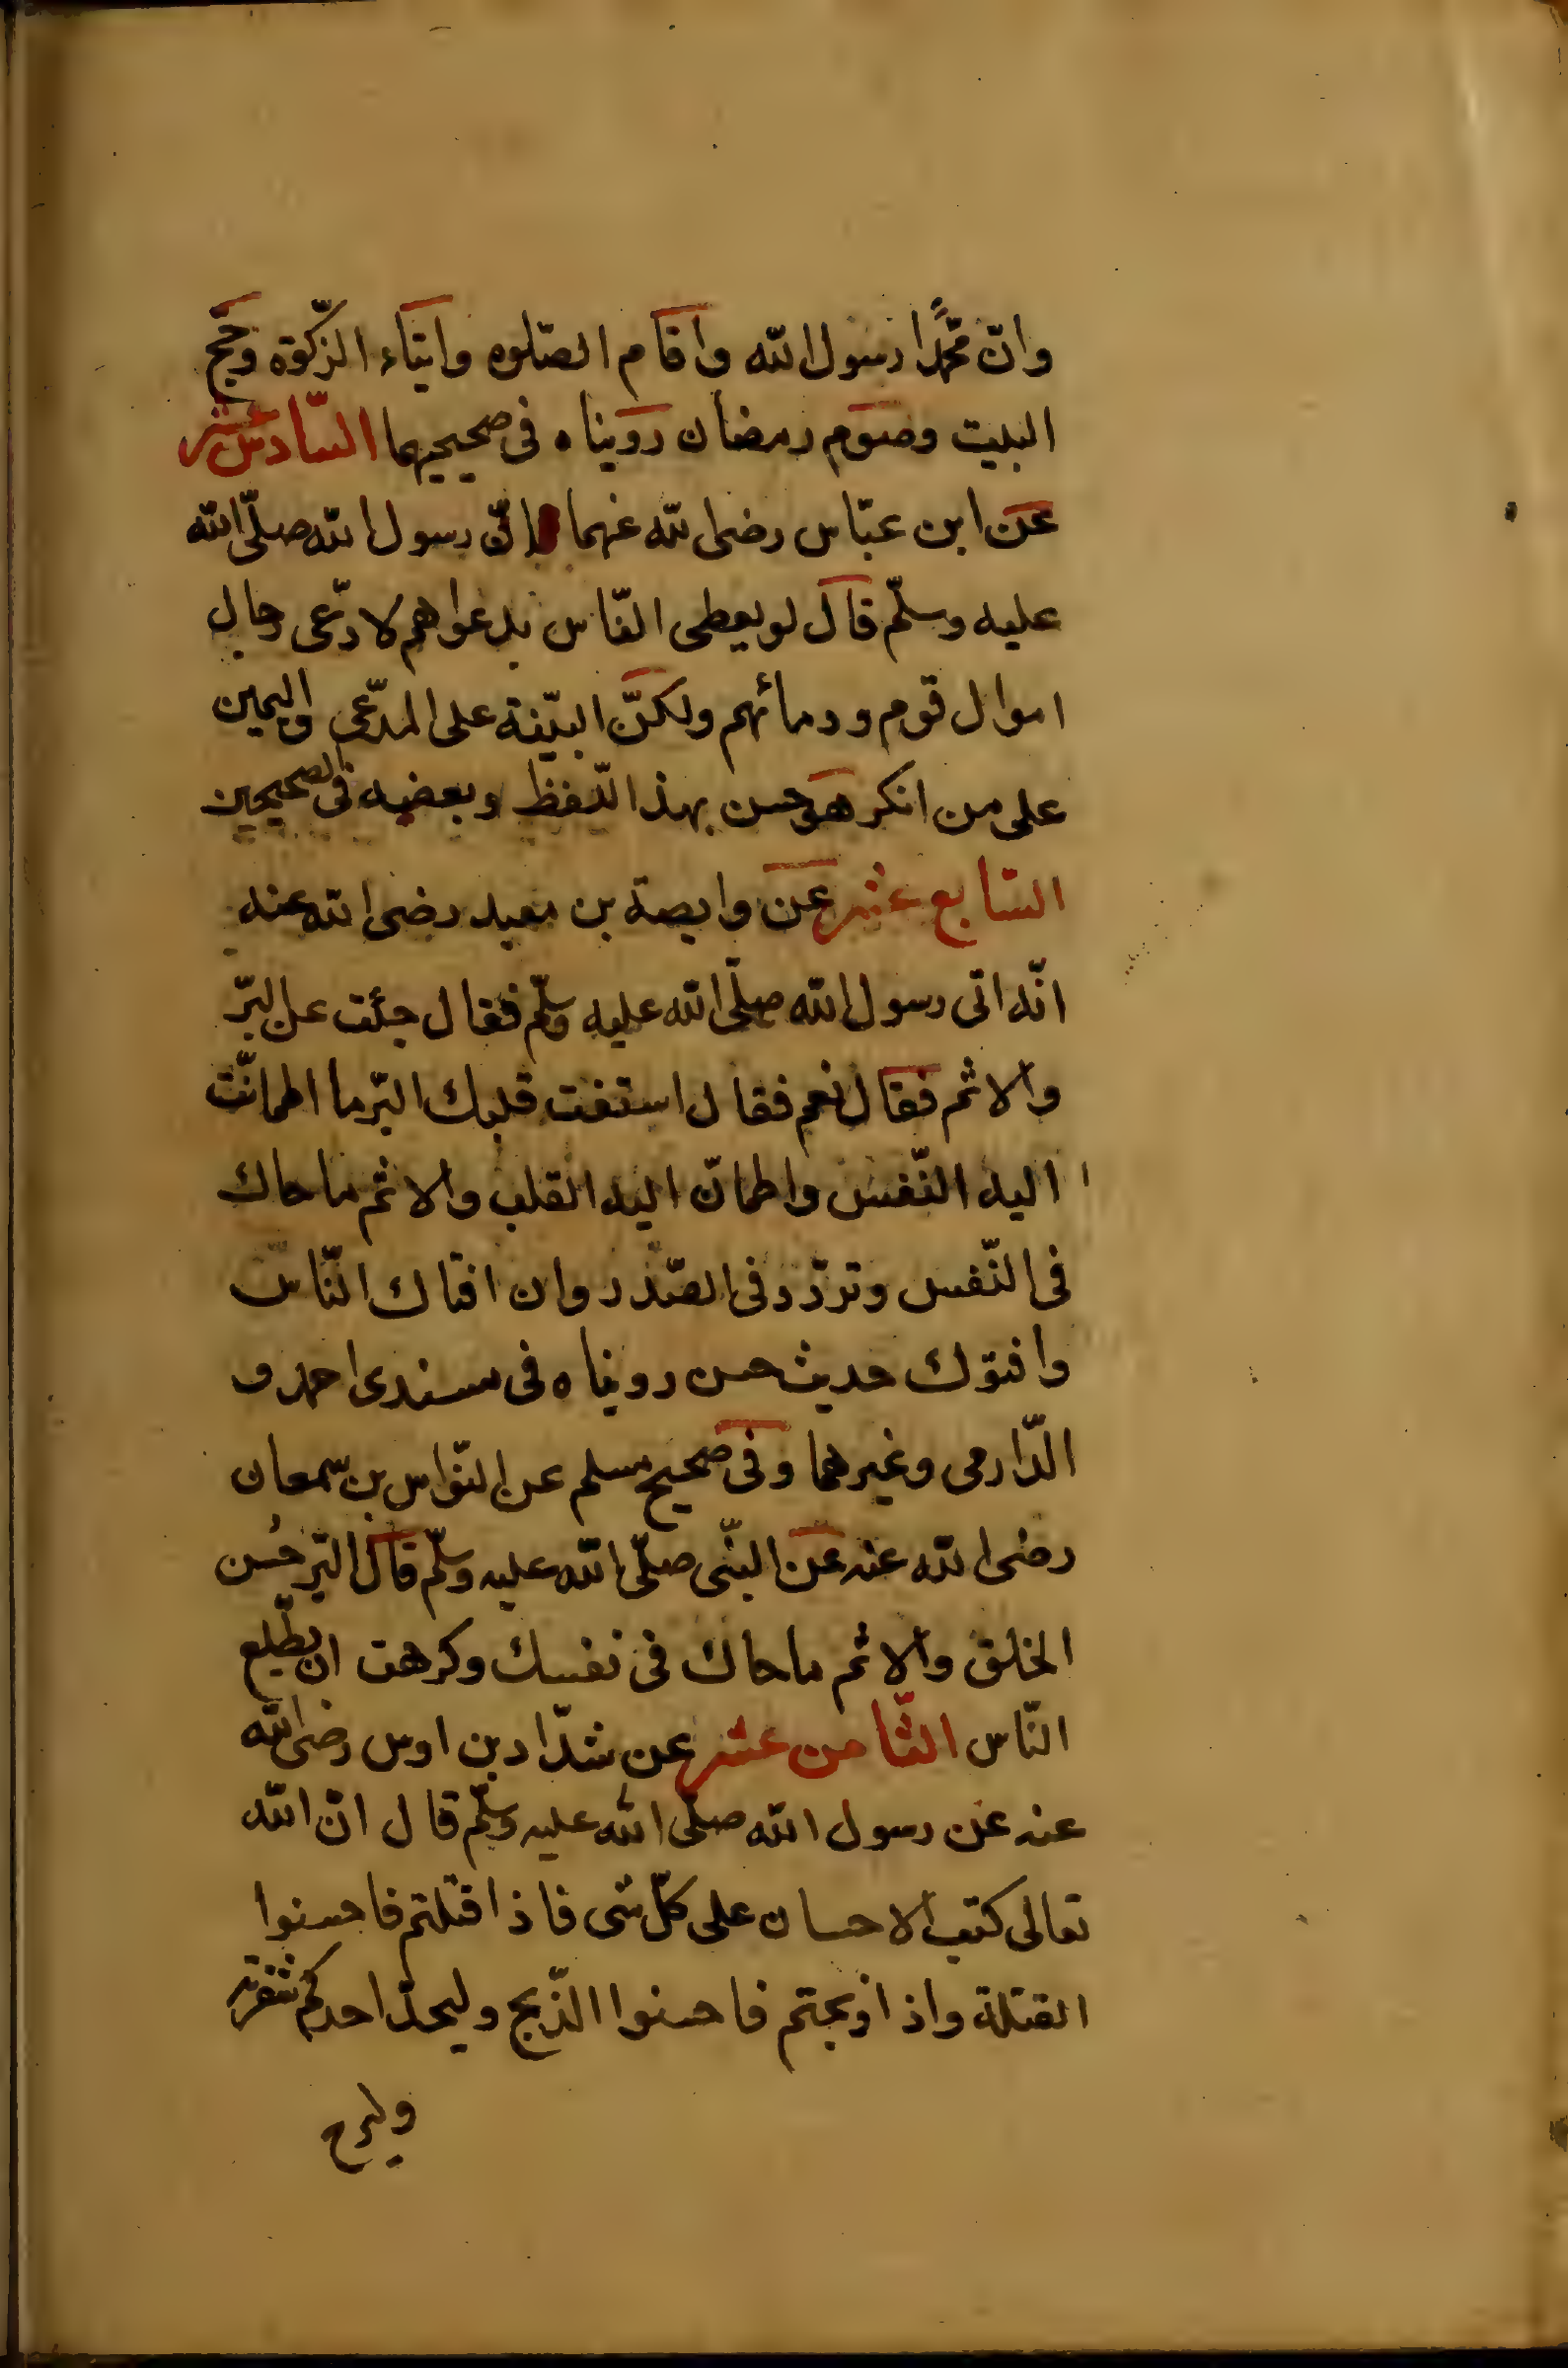 وانّ محمّدًا رسول الله واقام الصّلوه وايتاء الزّكوة وحجّ
البيت وصوم رمضان رويناه فى صحيحيهما السّادس عشر
عن ابن عبّاس رضى الله عنهما انّ رسول الله صلّى الله
عليه وسلّم قال لو يعطى النّاس بدعواهم لادّعى رجال
اموال قوم ودمائهم ولكنّ البيّنة على المدّعى واليمين
على من انكر هو حسن بهذا اللّفظ وبعضه فى الصحيحين
السّابع عشر عن وابصة بن معبد رضى الله عنه
انّه اتى رسول الله صلّى الله عليه وسلّم فقال جئت عن البرّ
والاثم فقال نعم فقال استفت قلبك البرّ ما اطمانّت
اليه النّفس واطمانّ اليه القلب والاثم ما حاك
فى النّفس وتردّد فى الصّدر وان افتاك النّاس
وافتوك حديث حسن رويناه فى مسندى احمد و
الدّارمى وغيرهما وفى صحيح مسلم عن النوّاس بن سمعان
رضى الله عنه عن النبّى صلّى الله عليه وسلّم قال البّر حُسن
الخلق والاثم ما حاك فى نفسك وكرهت ان يطّلع
النّاس الثّامن عشر عن شدّاد بن اوس رضى الله
عنه عن رسول الله صلّى الله عليه وسلّم قال انّ الله
تعالى كتب الاحسان على كلّ شى فاذا قتلتم فاحسنوا
القتلة واذا ذبحتم فاحسنوا الذّبح وليحدّ احدكم شفرته
وليرح